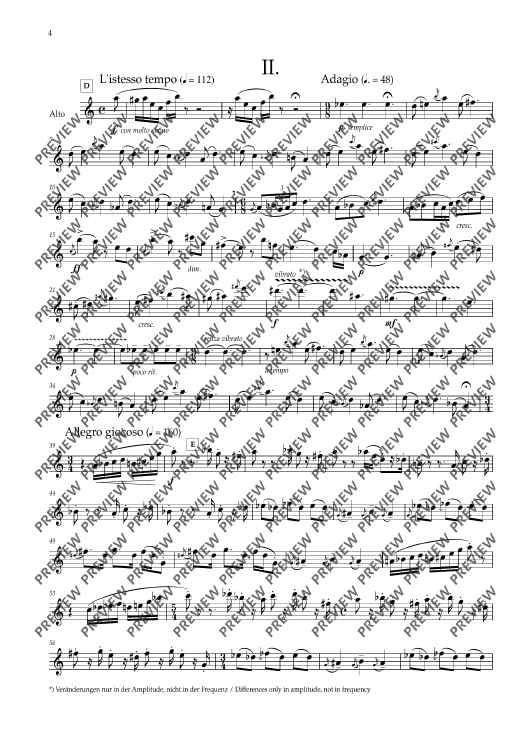 4
II.
D L'istesso tempo (♩ = 112) Adagio (♩. = 48)
Alto
con molto
semplice
10
cresc.
15
ff
dim.
vibrato *)
p
21
cresc.
f
mf
28
p
poco rit.
senza vibrato
a tempo
34
Allegro giocoso (♩ = 160)
39
E
f
44
49
53
56
*) Veränderungen nur in der Amplitude, nicht in der Frequenz / Differences only in amplitude, not in frequency
PREVIEW